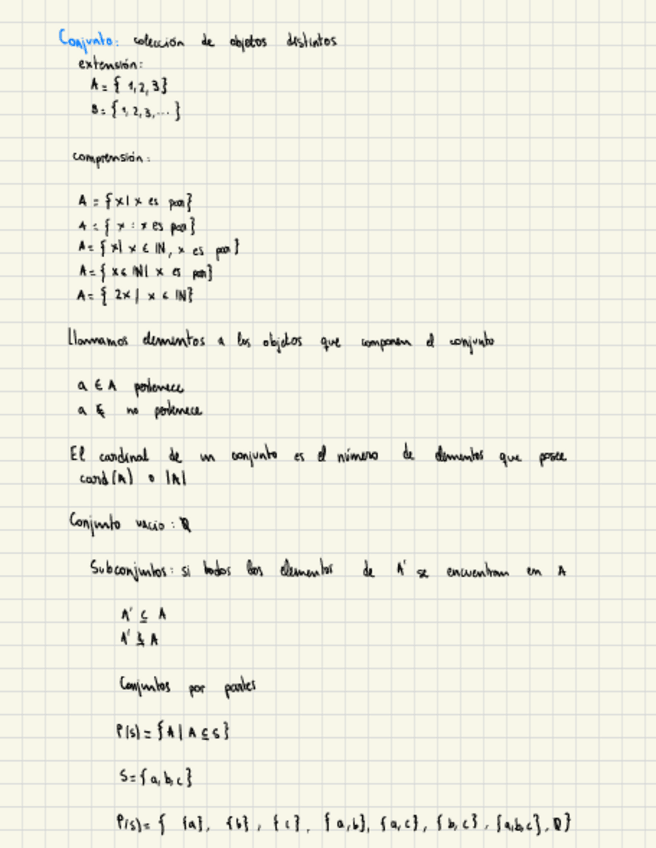 Conjunto: colección de objetos distintos
extensión:
A = { 1,2,3}
B = { 1, 2, 3, ... }
comprensión:
A = {x| x es par}
A = { x : x es par}
A = {x| x ∈ IN, x es par}
A = { x ∈ IN| x es par}
A = { 2x | x ∈ IN}
Llamamos elementos a los objetos que componen el conjunto
a ∈ A pertenece
a ∉ no pertenece
El cardinal de un conjunto es el número de elementos que posee
card(A) o |A|
Conjunto vacio: ∅
Subconjuntos: si todos los elementos de A' se encuentran en A
A' ⊆ A
A' ⊈ A
Conjuntos por partes
P(s) = {A | A ⊆ s}
S = {a,b,c}
P(s) = { {a}, {b}, {c}, {a,b}, {a,c}, {b,c}, {a,b,c}, ∅}